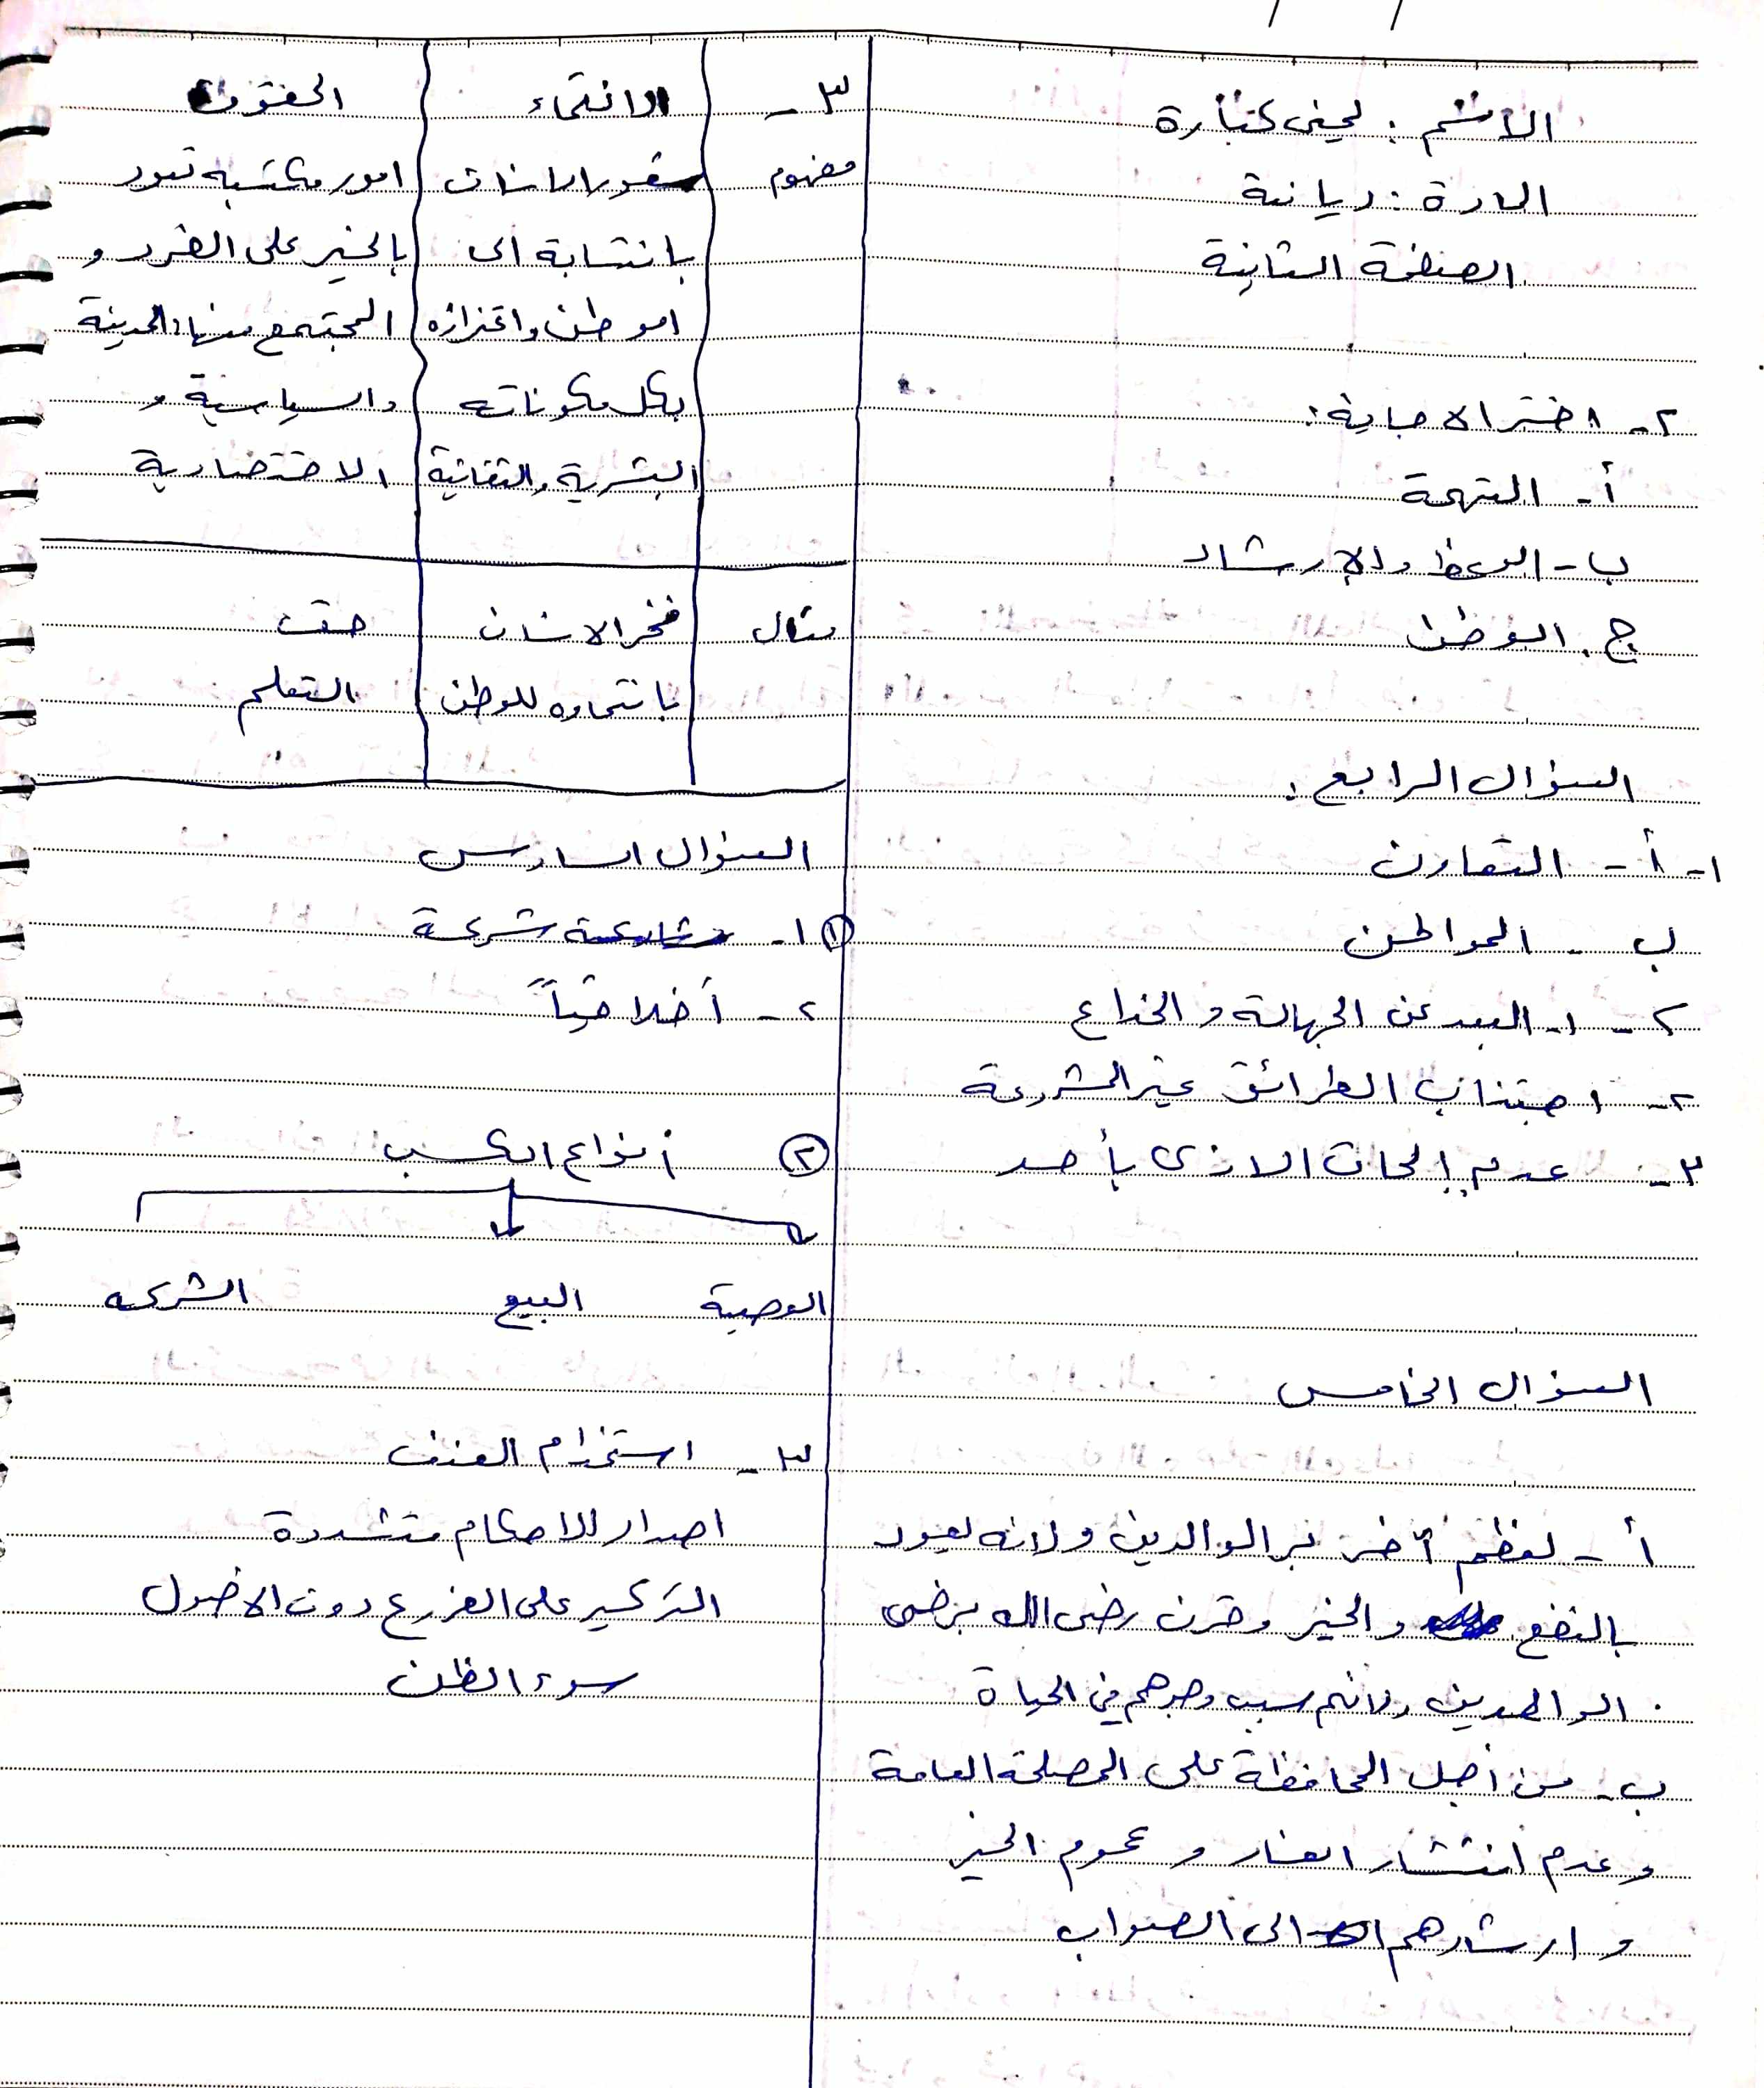 الاسم : لجين كبارة
المادة : ديانة
الصفحة الثانية
٢- اختر الاجابة :
أ- التهمة
ب- الوعظ والإرشاد
ج. الوطن
السؤال الرابع :
١- أ- التعاون
ب - المواطن
٢- ١- البعد عن الجهالة و الخداع
٢- اجتناب الطرائق غير المشروعة
٣- عدم إلحاق الاذى بأحد
السؤال الخامس
أ- لعظم أجر بر الوالدين ولانه يعود
بالنفع والخير وقرن رضى الله برضى
الوالدين ولانهم سبب وجودهم في الحياة
ب- من أجل المحافظة على المصلحة العامة
وعدم انتشار الفساد و عموم الخير
و ارشادهم الى الصواب
٣- الانتماء الحقوق
مفهوم شعور الانسان امور مكتسبه تعود
بانتسابة الى بالخير على الفرد و
الوطن واعتزازه المجتمع منها المدينة
بكل مكوناته والسياسية و
البشرية والثقافية الاقتصادية
مثال فخر الانسان حق
بانتماءه للوطن التعلم
السؤال السادس
① ١- شركة
٢- أخلاقياً
② أنواع الكسب
الوصية البيع الشركه
٣- استخدام العنف
اصدار للاحكام متشددة
التركيز على الفروع دون الاصول
سوء الظن